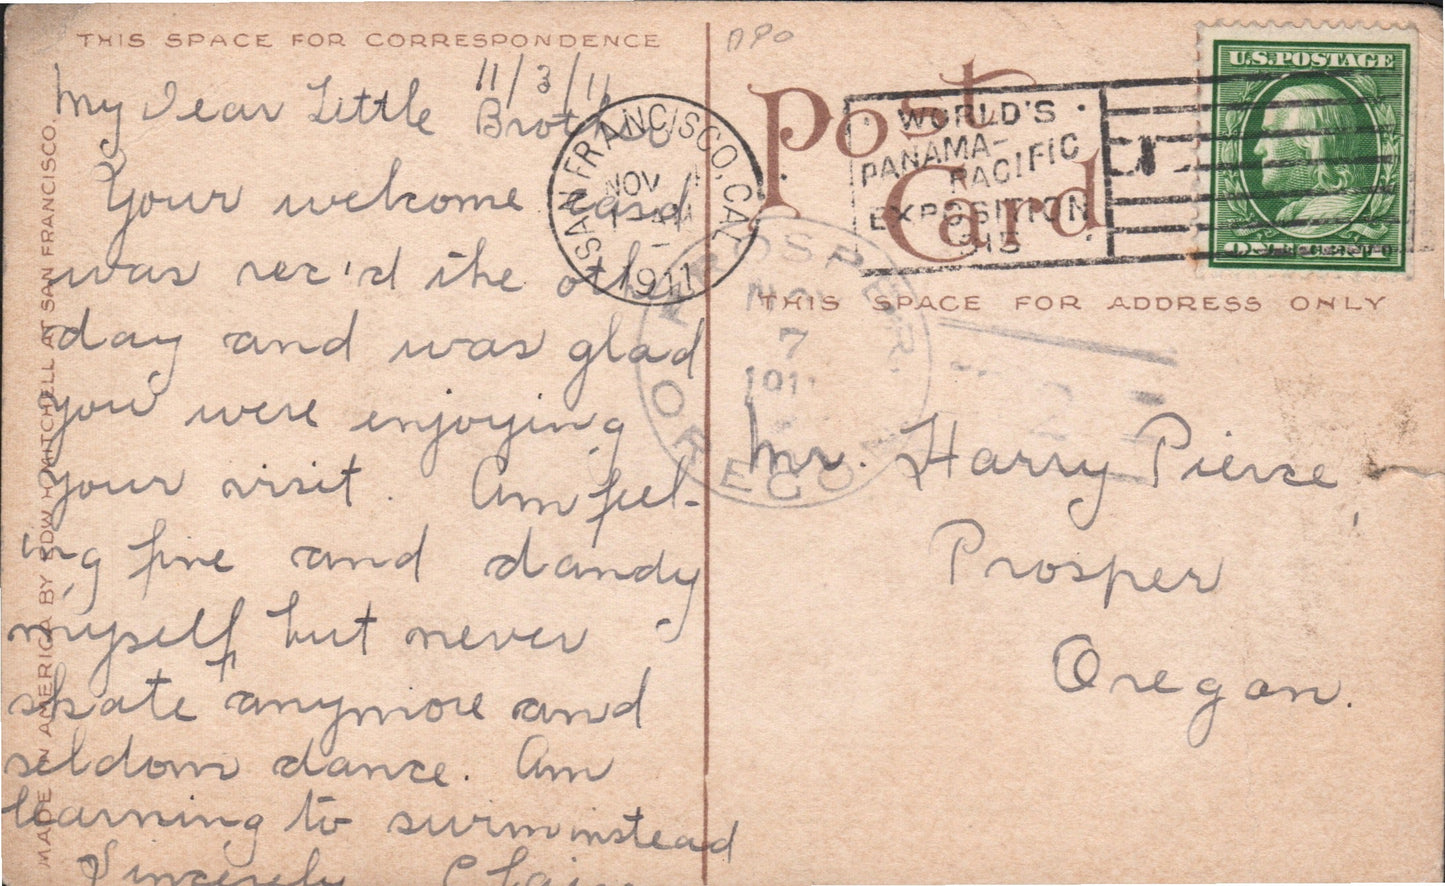 THIS SPACE FOR CORRESPONDENCE
11/3/11
My Dear Little Brother
Your welcome card
was rec'd the other
day and was glad
you were enjoying
your visit. Am feel-
ing fine and dandy
myself but never
skate anymore and
seldom dance. Am
learning to swim instead
Sincerely
MADE IN AMERICA BY EDW H MITCHELL AT SAN FRANCISCO.
SAN FRANCISCO, CAL.
NOV
1911
WORLD'S
PANAMA-
PACIFIC
EXPOSITION
1915
U.S. POSTAGE
Post
Card
THIS SPACE FOR ADDRESS ONLY
PROSPER
NOV
7
1911
OREGON
Mr. Harry Pierce
Prosper
Oregon.